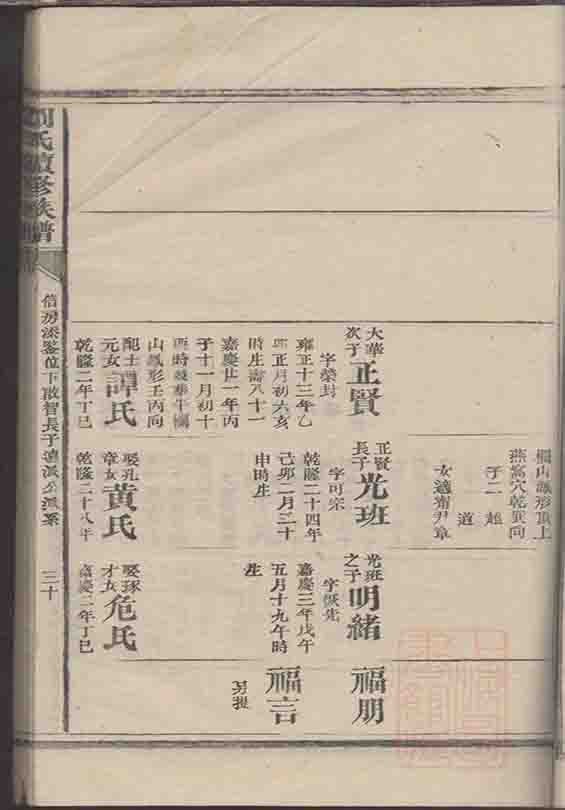 山形頂上
燕窩穴乾巽向
子二
道
女適齋尹章
大華
次子
正賢
字榮封
雍正十三年乙
卯正月初六亥
時生壽八十一
嘉慶廿一年丙
子十一月初十
酉時歿葬于
山形壬丙向
配士
元女
譚氏
乾隆二年丁巳
正賢
長子
光班
字可宗
乾隆二十四年
己卯二月二十
申時生
娶孔
章女
黄氏
乾隆二十八年
光班
之子
明緒
字恢先
嘉慶三年戊午
五月十九午時
生
娶琢
才女
危氏
嘉慶二年丁巳
福朋
福言
另提
氏續修族譜
信房深鑒位下啟智長子派分派系
三十